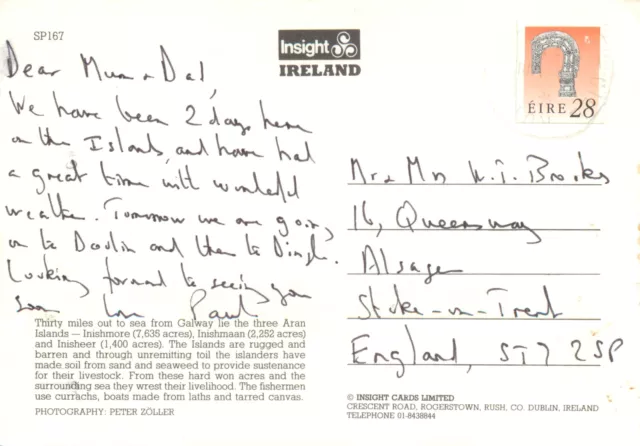 SP167
Insight
IRELAND
ÉIRE 28
Dear Mum & Dad,
We have been 2 days here
on the Islands and have had
a great time with wonderful
weather. Tomorrow we are going
on to Doolin and then to Dingle.
Looking forward to seeing you
soon love Paul
Mr & Mrs W.J. Brooks
16, Queensway
Alsager
Stoke-on-Trent
England, ST7 2SP
Thirty miles out to sea from Galway lie the three Aran
Islands — Inishmore (7,635 acres), Inishmaan (2,252 acres)
and Inisheer (1,400 acres). The Islands are rugged and
barren and through unremitting toil the islanders have
made soil from sand and seaweed to provide sustenance
for their livestock. From these hard won acres and the
surrounding sea they wrest their livelihood. The fishermen
use currachs, boats made from laths and tarred canvas.
PHOTOGRAPHY: PETER ZÖLLER
© INSIGHT CARDS LIMITED
CRESCENT ROAD, ROGERSTOWN, RUSH, CO. DUBLIN, IRELAND
TELEPHONE 01-8438844